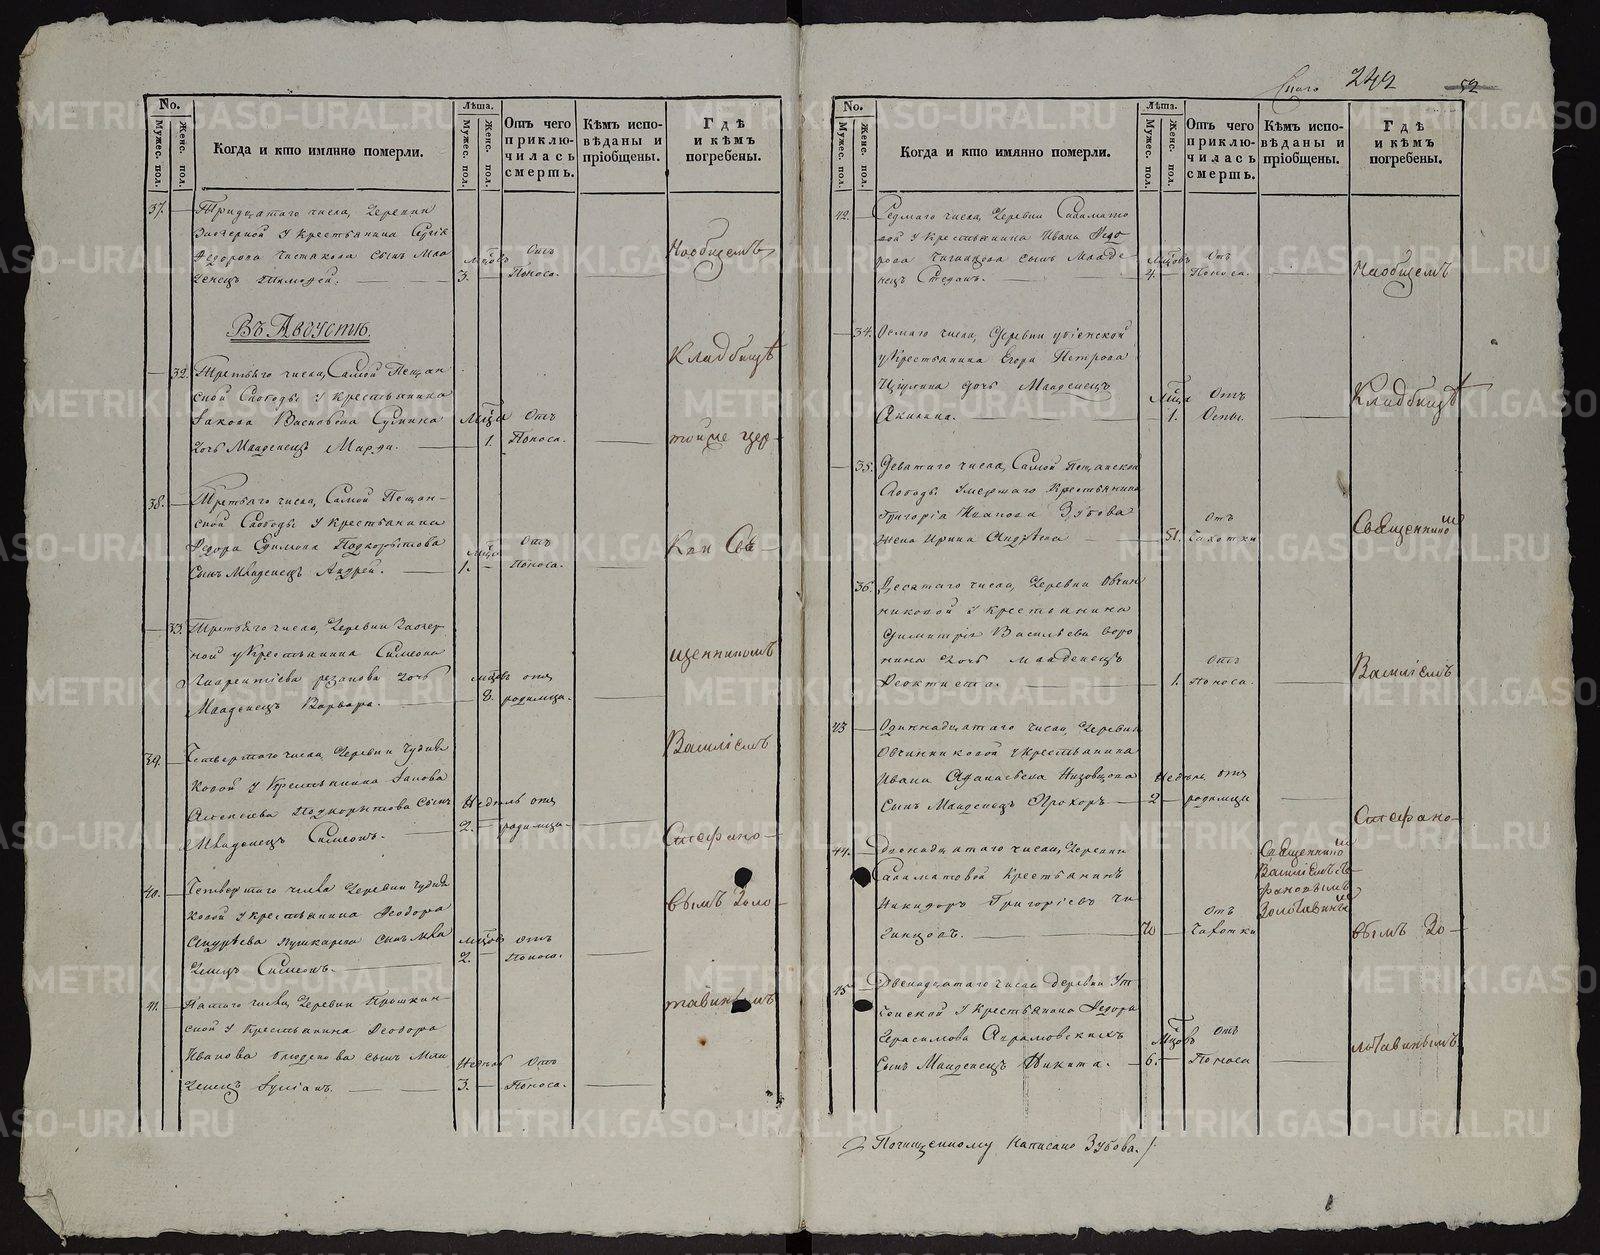 No.
Мужес. пол.
Женс. пол.
Когда и кто имянно померли.
Лѣта.
Мужес. пол.
Женс. пол.
Отъ чего приклю-
чилась смерть.
Кѣмъ испо-
вѣданы и
пріобщены.
Гдѣ
и кѣмъ
погребены.
37. Тридцатаго числа, Деревни
Заозерной у крестьянина
Федорова Чистякова сынъ Мла
денецъ Тимофей.
Мцовъ
3.
Отъ
Поноса.
Наобщемъ
Въ Августѣ.
32. Третьяго числа, Самой Пещан
ской Слободы у крестьянина
Іакова
дочь Младенецъ Марфа.
Мцда
1.
Отъ
Поноса.
Кладбищѣ
тойже цер-
38. Третьяго числа, Самой Пещан-
ской Слободы у крестьянина
Федора Ефимова Подкорытова
сынъ Младенецъ Андрей.
1.
Отъ
Поноса.
Кви Свя-
33. Третьяго числа, Деревни Заозер
ной у Крестьянина Симеона
Лаврентіева резанова дочь
Младенецъ Варвара.
мцовъ
8.
отъ
родимца.
щенникомъ
39. Четвертаго числа, Деревни Чудин
ковой у Крестьянина Іакова
Алексѣева Подкорытова сынъ
Младенецъ Симеонъ.
Недѣль
2.
отъ
родимца.
Василіемъ
Стефано-
40. Четвертаго числа Деревни Чудин
ковой у крестьянина Феодора
Андрѣева Пушкарева сынъ Мла
денецъ Симеонъ.
мцовъ
2.
отъ
Поноса.
вымъ Золо-
41. Пятаго числа, Деревни Прошкин-
ской у Крестьянина Феодора
Иванова сынъ Мла
денецъ Іуліанъ.
Недѣль
3.
Отъ
Поноса.
тавинымъ
242
52
No.
Мужес. пол.
Женс. пол.
Когда и кто имянно померли.
Лѣта.
Мужес. пол.
Женс. пол.
Отъ чего
приклю-
чилась
смерть.
Кѣмъ испо-
вѣданы и
пріобщены.
Гдѣ
и кѣмъ
погребены.
42. Седмаго числа, Деревни Саламато
вой у Крестьянина Ивана Федо
рова Чигинцова сынъ Младе
нецъ Стефанъ.
Мцовъ
4.
Отъ
Поноса.
Наобщемъ
34. Осмаго числа, Деревни
у Крестьянина Егора Петрова
дочь Младенецъ
Акилина.
Мцда
1.
Отъ
Оспы.
Кладбищѣ
35. Девятаго числа, Самой Пещанской
Слободы Умершаго Крестьянина
Григорія Иванова Зубова
жена Ирина Андрѣева
51.
Отъ
Чахотки
Священникомъ
36. Десятаго числа, Деревни Овчин
никовой у крестьянина
Димитрія Васильева Воро
нина дочь младенецъ
Феоктиста.
1.
Отъ
Поноса.
Василіемъ
43 Одиннадцатаго числа, Деревни
Овчинниковой у крестьянина
Ивана Афанасьева Низовцова
Сынъ Младенецъ Прохоръ
Недѣль
2
отъ
родимца
Стефано-
44. Двенадцатаго числа, Деревни
Саламатовой Крестьянинъ
Никифоръ Григоріевъ Чи
гинцовъ.
70
Отъ
Чахотки
Священникомъ
Василіемъ Сте
фановымъ
Золотавинымъ
вымъ Зо-
45 Двенадцатаго числа деревни
у Крестьянина Федора
Герасимова Авраамовскихъ
сынъ Младенецъ Никита.
Мцовъ
6.
Отъ
Поноса
лотавинымъ.
Почищенному написано Зубова.